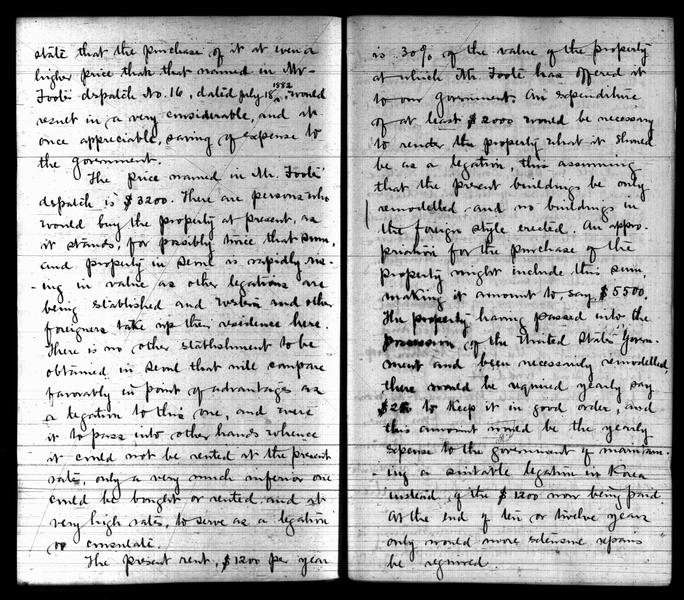 state that the purchase of it at even a
higher price than that named in Mr.
Foote's dispatch No. 16, dated July 18, 1882, would
result in a very considerable, and at
once appreciable, saving of expense to
the government.
The price named in Mr. Foote's
dispatch is $3200. There are persons who
would buy the property at present, as
it stands, for possibly twice that sum,
and property in Seoul is rapidly ris-
ing in value as other legations are
being established and Western and other
foreigners take up their residence here.
There is no other establishment to be
obtained in Seoul that will compare
favorably in point of advantages as
a legation to this one, and were
it to pass into other hands whence
it could not be rented at the present
rate, only a very much inferior one
could be bought or rented, and at
very high rates, to serve as a legation
or consulate.
The present rent, $1200 per year
is 30% of the value of the property
at which Mr. Foote has offered it
to our government. An expenditure
of at least $2000 would be necessary
to render the property what it should
be as a legation, this assuming
that the present buildings be only
remodelled and no buildings in
the foreign style erected. An appro-
priation for the purchase of the
property might include this sum,
making it amount to, say, $5500.
The property having passed into the
possession of the United States Govern-
ment and been necessarily remodelled,
there would be required yearly say
to keep it in good order, and
this amount would be the yearly
expense to the government of maintain-
ing a suitable legation in Korea
instead of the $1200 now being paid.
At the end of ten or twelve years
only would more extensive repairs
be required.